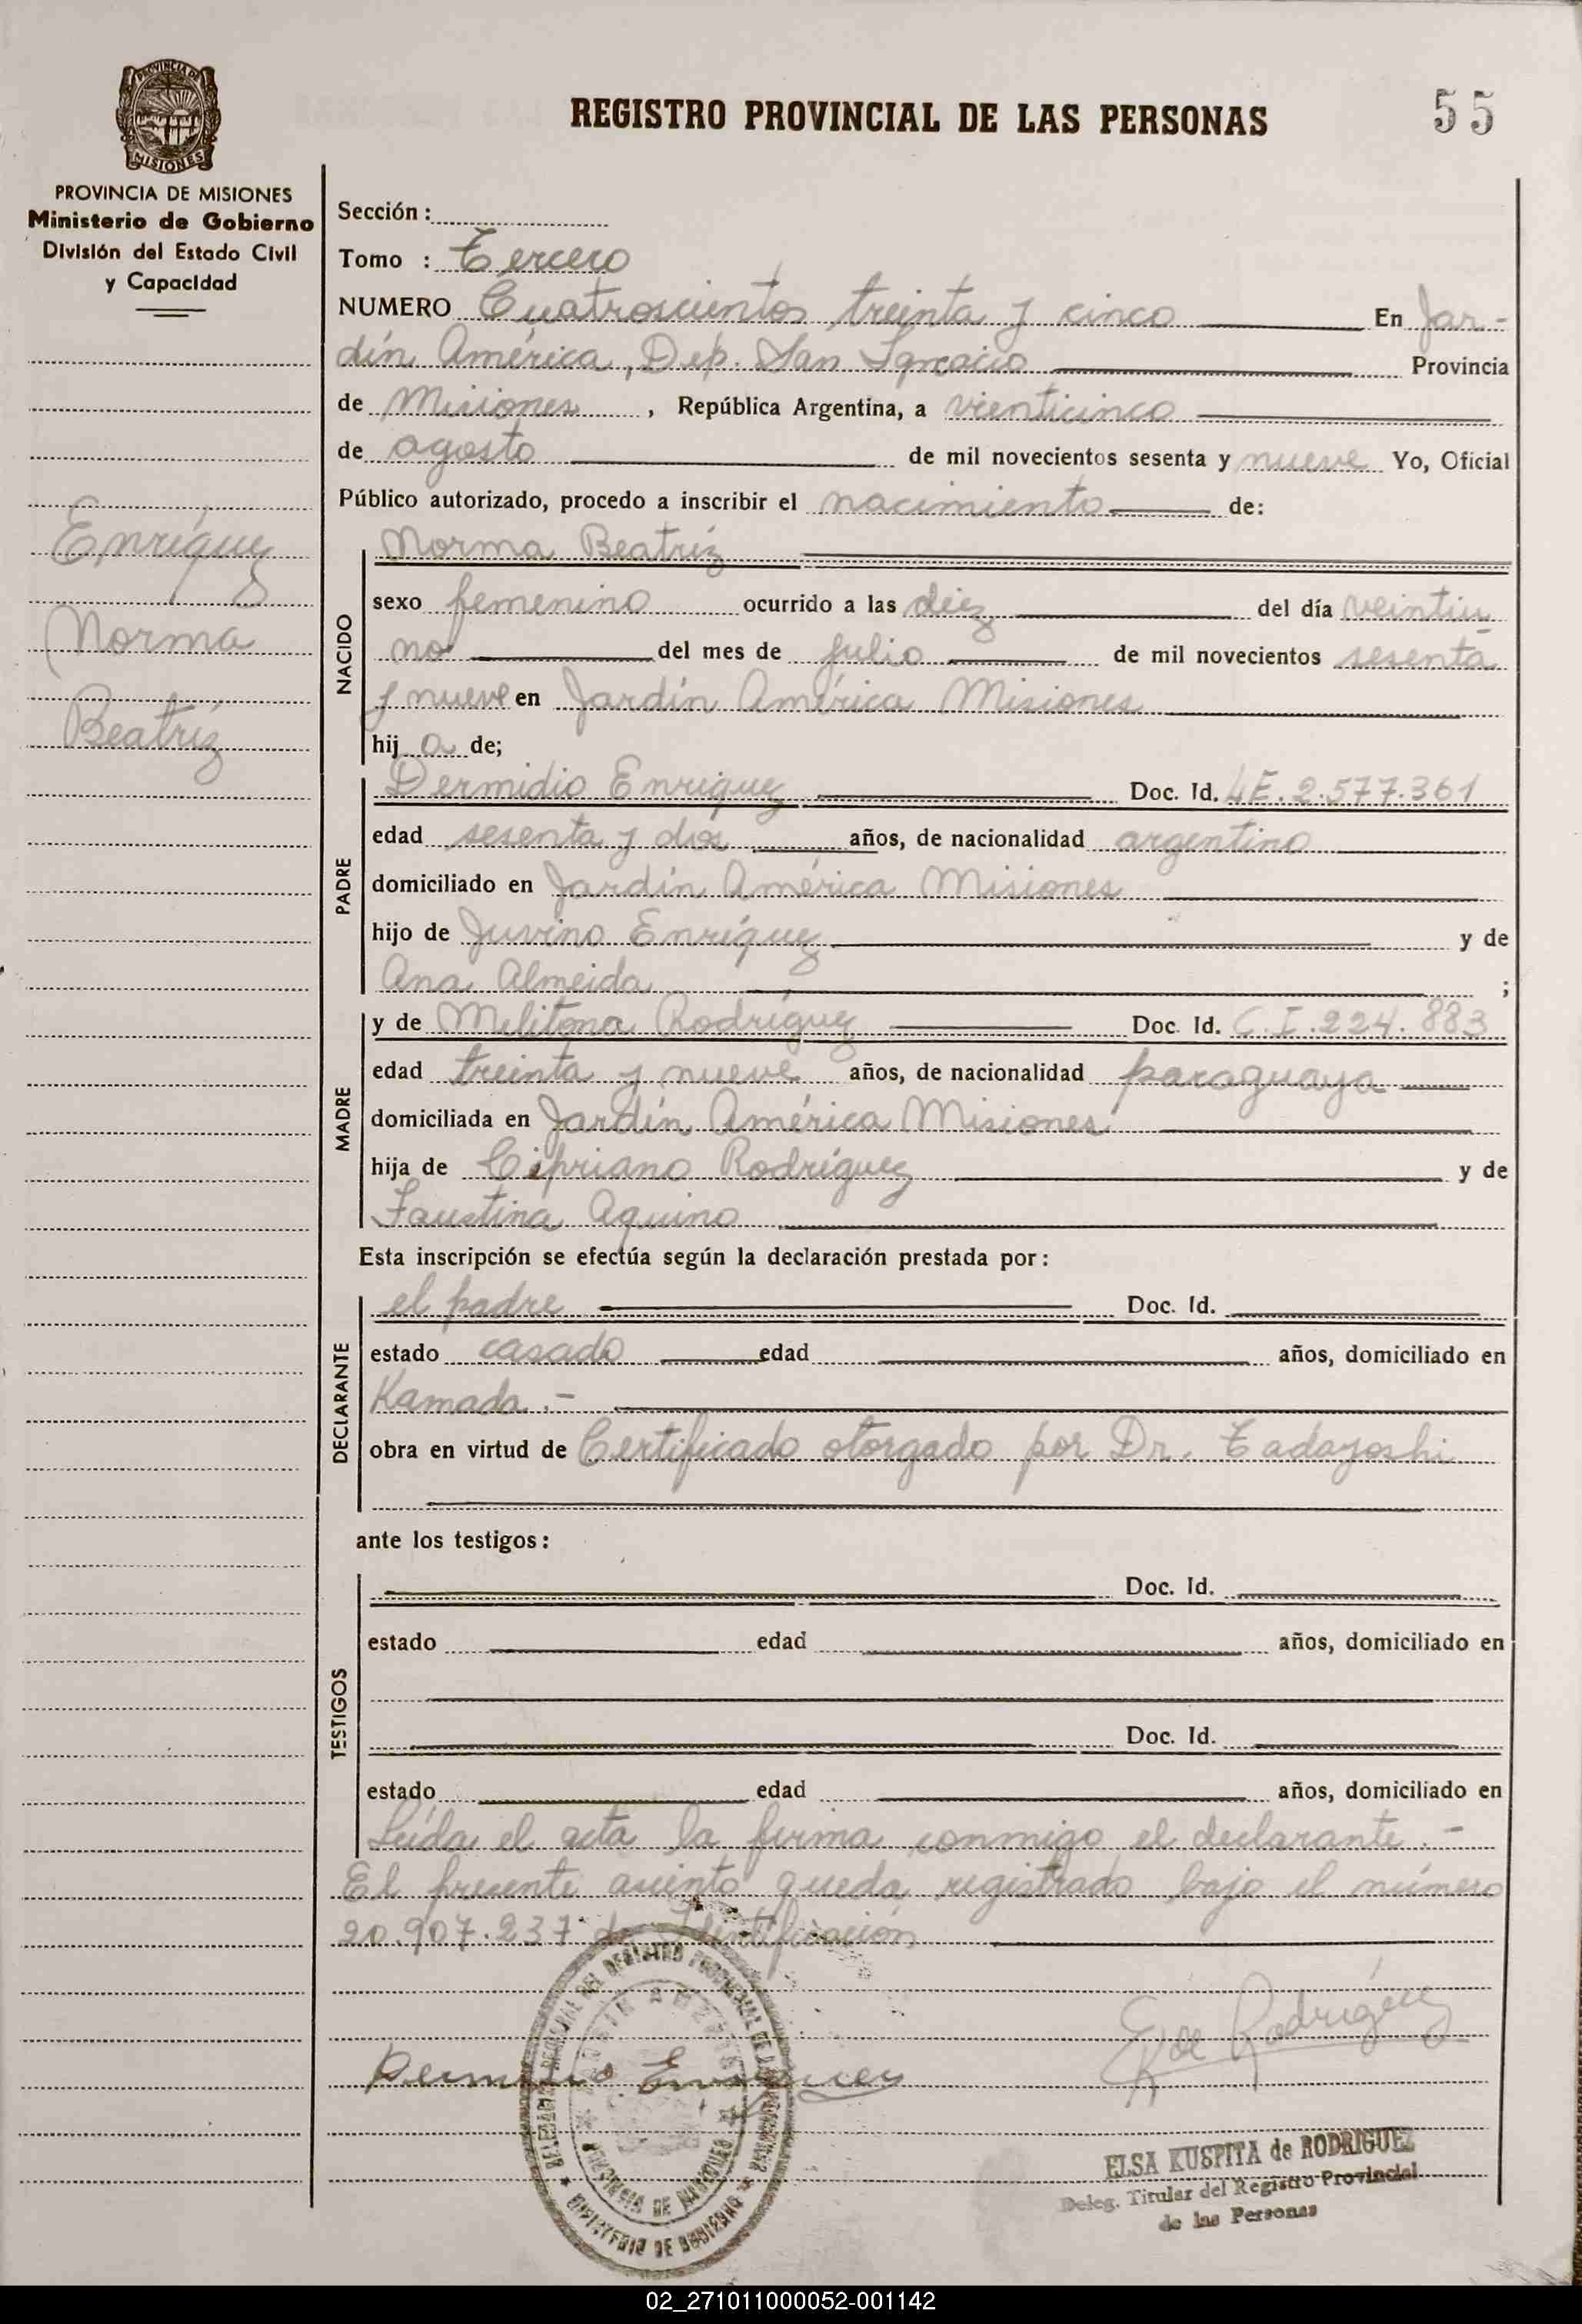 REGISTRO PROVINCIAL DE LAS PERSONAS
55
PROVINCIA DE MISIONES
PROVINCIA DE MISIONES
Ministerio de Gobierno
División del Estado Civil
y Capacidad
Enríquez
Norma
Beatríz
Sección :
Tomo : Tercero
NUMERO Cuatroscientos treinta y cinco En Jar-
dín América, Dep. San Ignacio Provincia
de Misiones , República Argentina, a vienticinco
de agosto de mil novecientos sesenta y nueve Yo, Oficial
Público autorizado, procedo a inscribir el nacimiento de:
NACIDO
Norma Beatríz
sexo femenino ocurrido a las diez del día veintiu
no del mes de julio de mil novecientos sesenta
y nueve en Jardín América Misiones
hij a de;
PADRE
Dermidio Enríquez Doc. Id. LE. 2.577.361
edad sesenta y dos años, de nacionalidad argentino
domiciliado en Jardín América Misiones
hijo de Juvino Enríquez y de
Ana Almeida ;
MADRE
y de Melitona Rodríguez Doc. Id. C.I. 224.883
edad treinta y nueve años, de nacionalidad paraguaya
domiciliada en Jardín América Misiones
hija de Cipriano Rodríguez y de
Faustina Aquino
Esta inscripción se efectúa según la declaración prestada por :
DECLARANTE
el padre Doc. Id.
estado casado edad años, domiciliado en
Kamada.-
obra en virtud de Certificado otorgado por Dr. Tadayoshi
ante los testigos :
TESTIGOS
Doc. Id.
estado edad años, domiciliado en
Doc. Id.
estado edad años, domiciliado en
Leída el acta la firma conmigo el declarante.-
El presente asiento queda registrado bajo el número
20.907.237 de Identificación
DEL REGISTRO PROVINCIAL DE
JARDIN AMERICA
PROVINCIA DE MISIONES
MINISTERIO DE GOBIERNO
E K de Rodríguez
Dermidio Enriquez
ELSA KUSPITA de RODRIGUEZ
Deleg. Titular del Registro Provincial
de las Personas
02_271011000052-001142